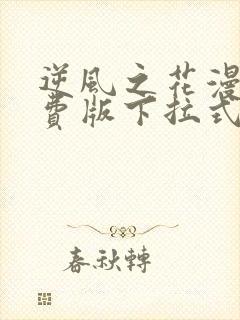 逆風之花漫
費版下拉式
春秋轉